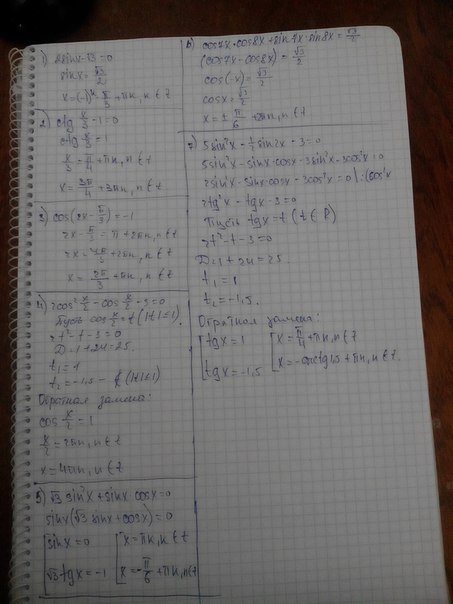 1) 2sinx-√3=0
sinx=√3/2
x=(-1)ᵏ π/3+πn, n∈Z
2) ctg x/3-1=0
ctg x/3=1
x/3=π/4+πn, n∈Z
x=3π/4+3πn, n∈Z
3) cos(2x-π/3)=-1
2x-π/3=π+2πn, n∈Z
2x=4π/3+2πn, n∈Z
x=2π/3+πn, n∈Z
4) 2cos² x/2-cos x/2-3=0
Пусть cos x/2=t (|t|≤1).
2t²-t-3=0
D=1+24=25.
t₁=1
t₂=-1,5-∉(|t|≤1)
Обратная замена:
cos x/2=1
x/2=2πn, n∈Z
x=4πn, n∈Z
5) √3 sin²x+sinx·cosx=0
sinx(√3 sinx+cosx)=0
sinx=0 x=πn, n∈Z
√3tgx=-1 x=-π/6+πn, n∈Z
6) cos7x·cos8x+sin7x·sin8x=√3/2
(cos7x-cos8x)=√3/2
cos(-x)=√3/2
cosx=√3/2
x=±π/6+2πn, n∈Z
7) 5sin²x-½sin2x-3=0
5sin²x-sinx·cosx-3sin²x-3cos²x=0
2sin²x-sinx·cosx-3cos²x=0|:(cos²x
2tg²x-tgx-3=0
Пусть tgx=t (t∈R)
2t²-t-3=0
D=1+24=25
t₁=1
t₂=-1,5.
Обратная замена:
tgx=1 x=π/4+πn, n∈Z
tgx=-1,5 x=-arctg1,5+πn, n∈Z.